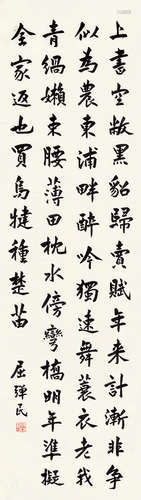 上書空敝黑貂歸賣賦年来計漸非爭
似為農東浦畔醉吟獨速舞蓑衣老我
青緺嬾束腰薄田枕水傍彎橋明年準擬
全家返也買烏犍種楚苗
屈彊民